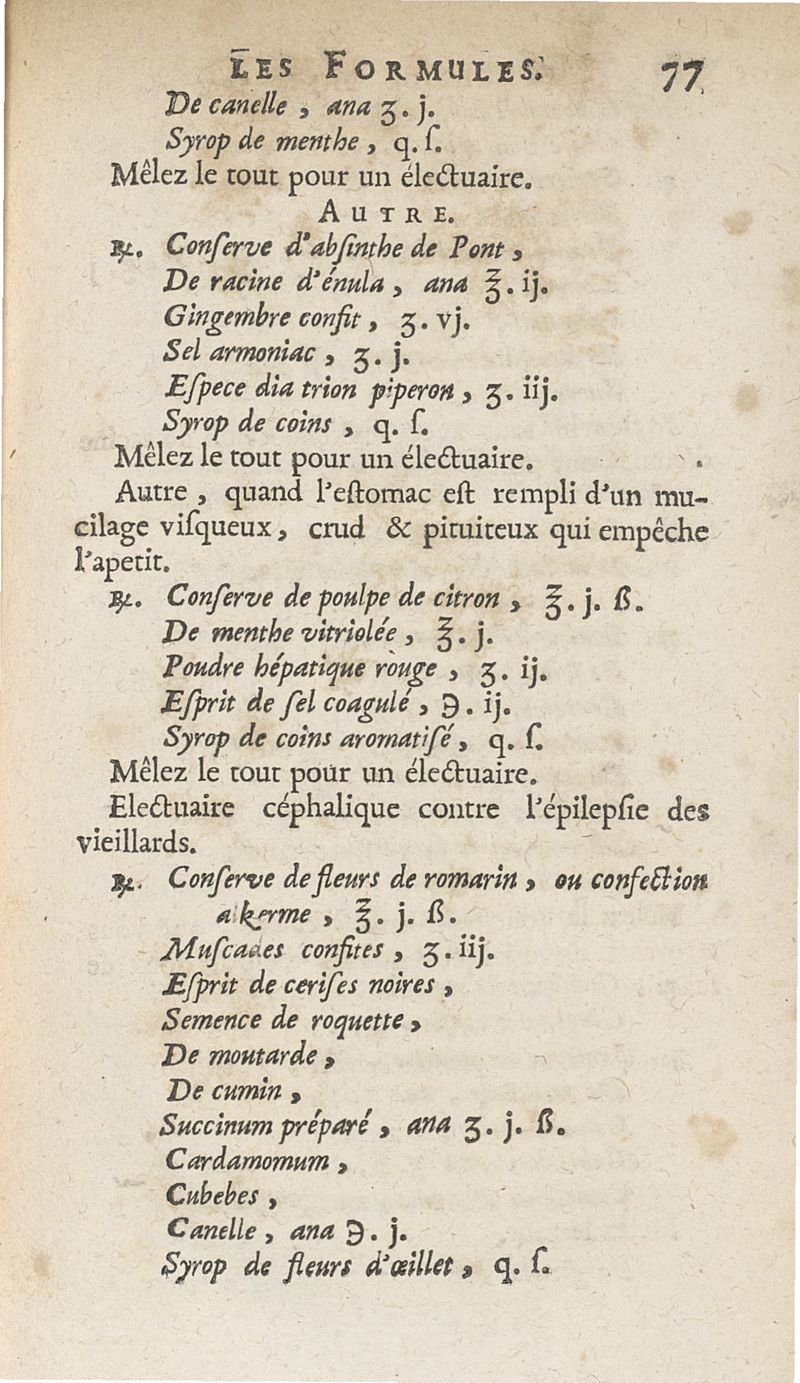 LES FORMULES. 77
De canelle, ana ʒ. j.
Syrop de menthe, q. ſ.
Mêlez le tout pour un électuaire.
AUTRE.
℞. Conſerve d'abſinthe de Pont,
De racine d'énula, ana ℥. ij.
Gingembre confit, ʒ. vj.
Sel armoniac, ʒ. j.
Eſpece dia trion piperon, ʒ. iij.
Syrop de coins, q. ſ.
Mêlez le tout pour un électuaire.
Autre, quand l'eſtomac eſt rempli d'un mu-
cilage viſqueux, crud & pituiteux qui empêche
l'apetit.
℞. Conſerve de poulpe de citron, ℥. j. ß.
De menthe vitriolée, ℥. j.
Poudre hépatique rouge, ʒ. ij.
Eſprit de ſel coagulé, ℈. ij.
Syrop de coins aromatiſé, q. ſ.
Mêlez le tout pour un électuaire.
Electuaire céphalique contre l'épilepſie des
vieillards.
℞. Conſerve de fleurs de romarin, ou confection
alkerme, ℥. j. ß.
Muſcades confites, ʒ. iij.
Eſprit de ceriſes noires,
Semence de roquette,
De moutarde,
De cumin,
Succinum préparé, ana ʒ. j. ß.
Cardamomum,
Cubebes,
Canelle, ana ℈. j.
Syrop de fleurs d'œillet, q. ſ.